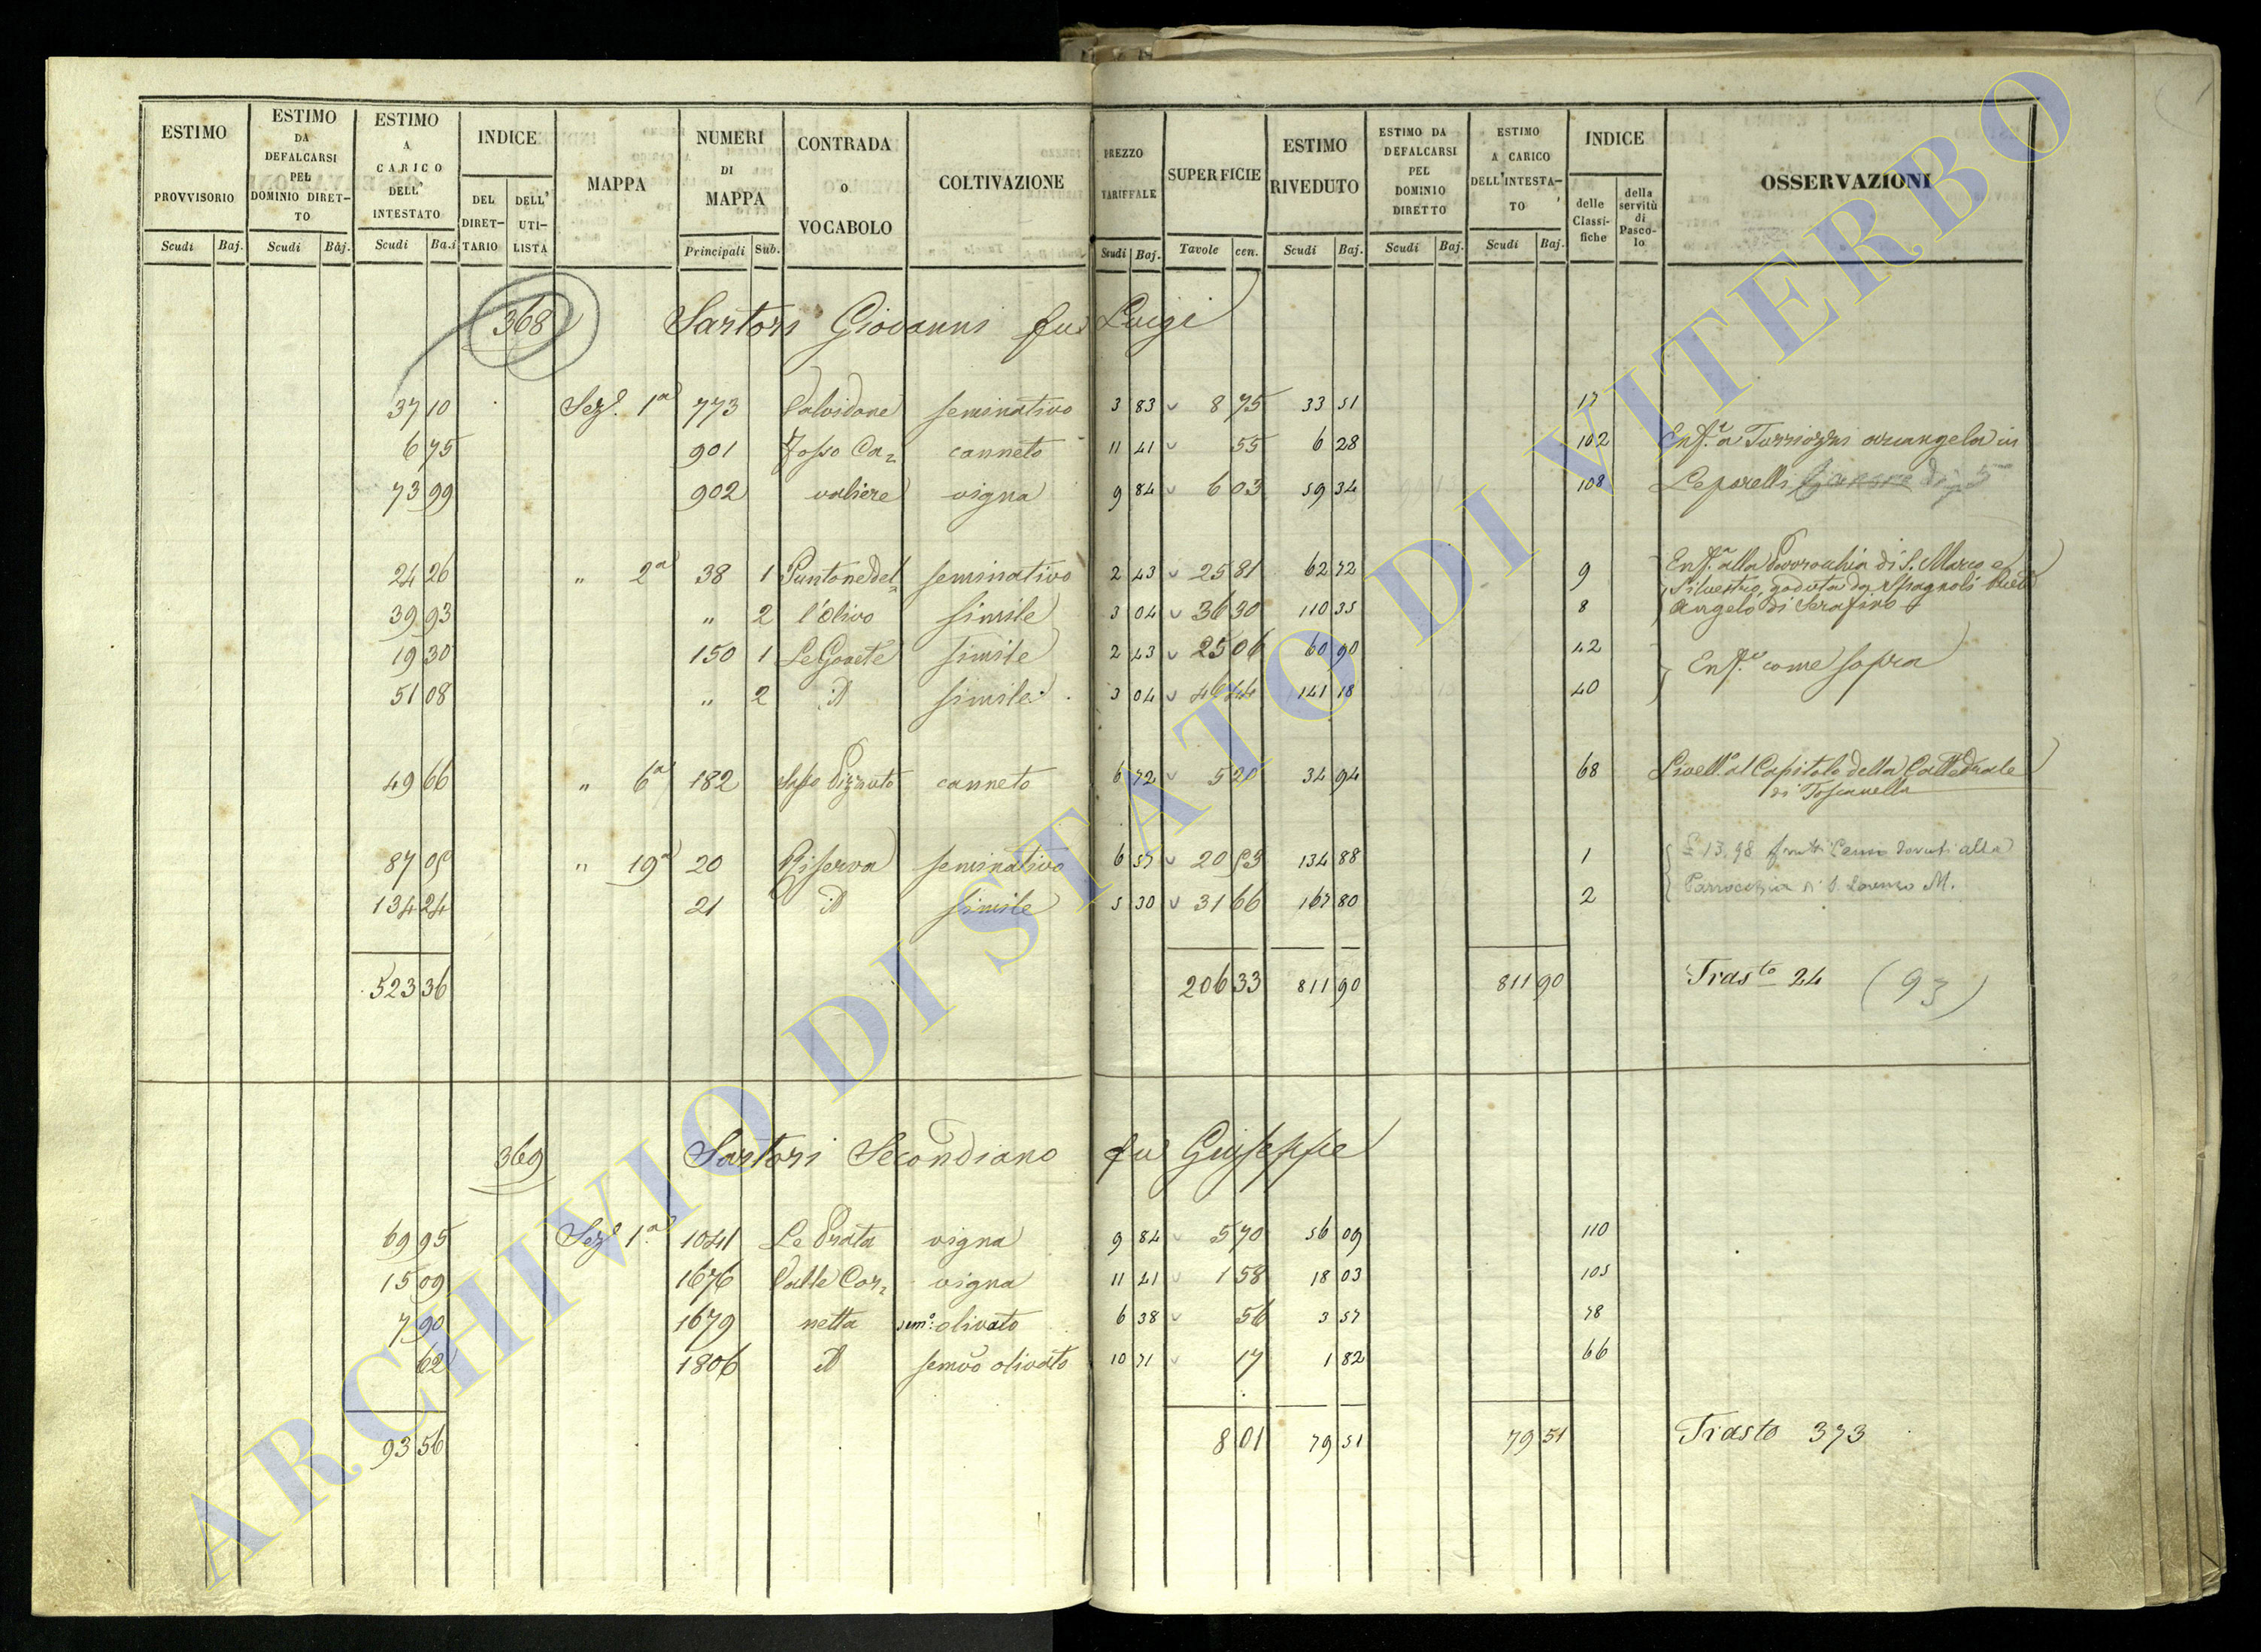 ESTIMO PROVVISORIO Scudi Baj.
ESTIMO DA DEFALCARSI PEL DOMINIO DIRETTO Scudi Baj.
ESTIMO A CARICO DELL' INTESTATO Scudi Baj.
INDICE DEL DIRETTARIO DELL' UTILISTA
MAPPA
NUMERI DI MAPPA Principali Sub.
CONTRADA O VOCABOLO
COLTIVAZIONE
PREZZO TARIFFALE Scudi Baj.
SUPERFICIE Tavole cen.
ESTIMO RIVEDUTO Scudi Baj.
ESTIMO DA DEFALCARSI PEL DOMINIO DIRETTO Scudi Baj.
ESTIMO A CARICO DELL'INTESTATO Scudi Baj.
INDICE delle Classifiche della servitù di Pascolo
OSSERVAZIONI
368 Sartori Giovanni fu Luigi
37 10 Sez.e 1a 773 Valvidone seminativo 3 83 8 75 33 51 17
6 75 901 Fosso Ca= canneto 11 41 55 6 28 102 Enf.a a Turriozzi arcangela in
73 99 902 valiere vigna 9 84 6 03 59 34 108 Leporelli
24 26 " 2a 38 1 Puntone del= seminativo 2 43 25 81 62 72 9 Enf.a alla Parrocchia di S. Marco e
39 93 " 2 l'Olivo simile 3 04 36 30 110 35 8 Silvestro, goduta da Spagnoli
Angelo di Serafino
19 30 150 1 Le Govete simile 2 43 25 06 60 90 42 Enf.a come sopra
51 08 " 2 id simile 3 04 46 44 141 18 40
49 66 " 6a 182 Sasso Pizzuto canneto 6 72 5 20 34 94 68 Livell.o al Capitolo della Cattedrale
di Toscanella
87 05 " 19a 20 Riserva seminativo 6 57 20 53 134 88 1 13.98 dovuti alla
134 24 21 id simile 5 30 31 66 167 80 2 Parrocchia di S. Lorenzo M.
523 36 206 33 811 90 811 90 Trasto 24 (93)
369 Sartori Secondiano fu Giuseppe
69 95 Sez.e 1a 1041 Le Prata vigna 9 84 5 70 56 09 110
15 09 1676 Valle Cor= vigna 11 41 1 58 18 03 105
7 90 1679 netta sem.o olivato 6 38 56 3 57 78
62 1806 id semvo olivato 10 71 17 1 82 66
93 56 8 01 79 51 79 51 Trasto 373
ARCHIVIO DI STATO DI VITERBO